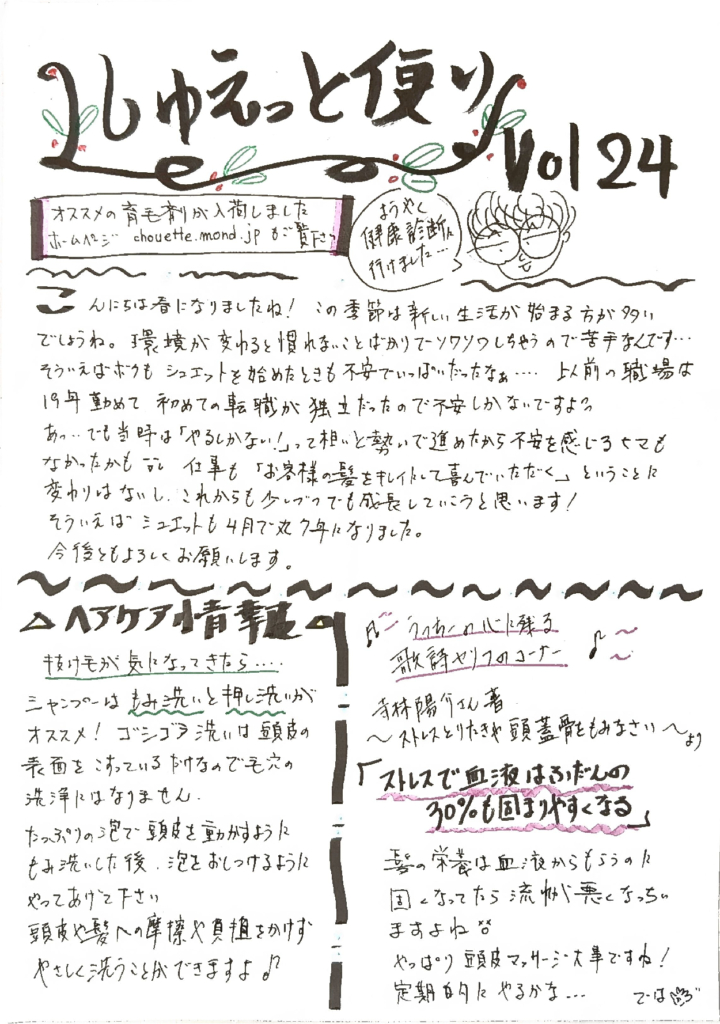 しゅえっと便り
Vol 24
オススメの育毛剤が入荷しました
ホームページ chouette.mond.jp もご覧下さい
ようやく
健康診断に
行けました…
こんにちは春になりましたね! この季節は新しい生活が始まる方が多い
でしょうね。環境が変わると慣れないことばかりでソワソワしちゃうので苦手なんです…
そういえばボクも シュエットを始めたときも不安でいっぱいだったなぁ…. 以前の職場は
19年勤めて 初めての転職が独立だったので不安しかないですよね
あっ…でも当時は「やるしかない!」って想いと勢いで進めたから不安を感じるヒマも
なかったかも 仕事も「お客様の髪をキレイにして喜んでいただく」ということに
変わりはないし、これからも少しづつでも成長していこうと思います!
そういえば シュエットも4月で丸7年になりました。
今後ともよろしくお願いします。
ヘアケア情報
抜け毛が気になってきたら…..
シャンプーは もみ洗いと押し洗いが
オススメ! ゴシゴシ洗いは頭皮の
表面をこすっているだけなので毛穴の
洗浄にはなりません.
たっぷりの泡で頭皮を動かすように
もみ洗いした後、泡をおしつけるように
やってあげて下さい
頭皮や髪への摩擦や負担をかけず
やさしく洗うことができますよ♪
うっちーの心に残る
歌詩セリフのコーナー
寺林陽介さん著
〜ストレスとりたきゃ頭蓋骨をもみなさい〜より
「ストレスで血液はふだんの
30%も固まりやすくなる」
髪の栄養は血液からもらうのに
固くなってたら流れが悪くなっちゃい
ますよね
やっぱり頭皮マッサージ大事ですね!
定期的にやるかな… では